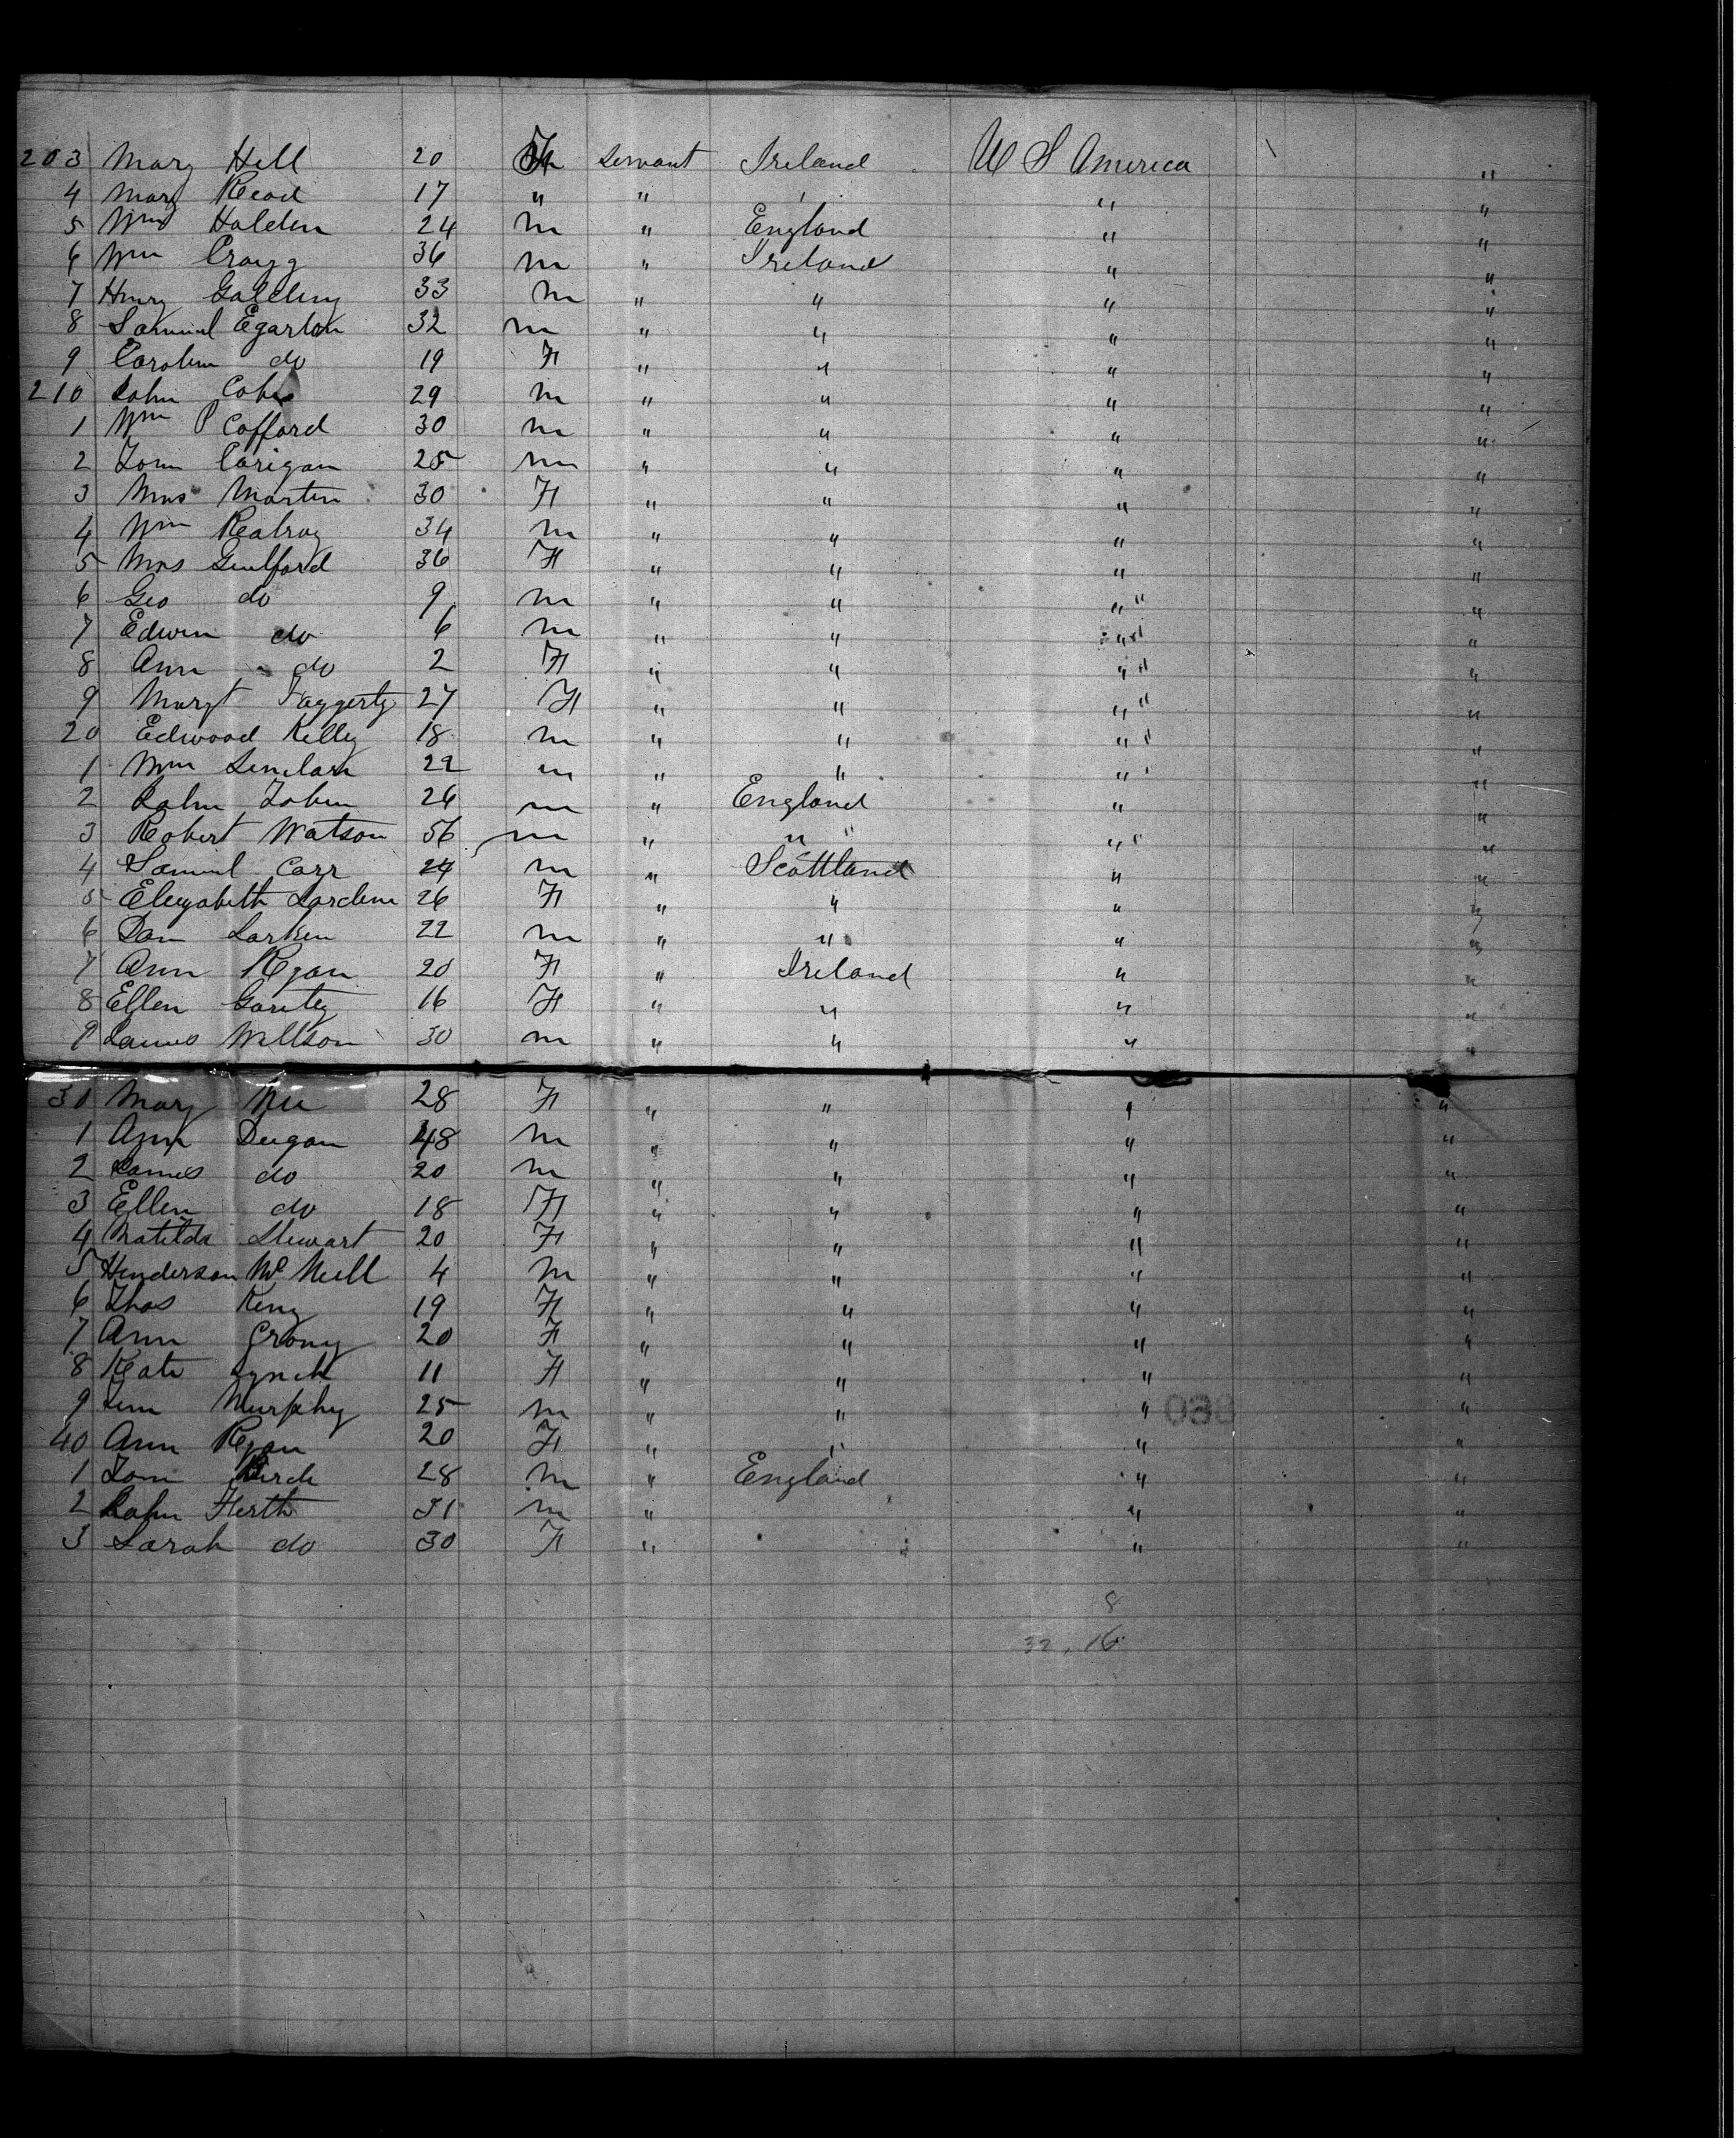 203 Mary Hill 20 F servant Ireland U S America "
4 Mary Read 17 " " " "
5 Wm Holden 24 m " England " "
6 Wm Cragg 36 m " Ireland " "
7 Henry Golding 33 m " " " "
8 Samuel Egarton 32 m " " " "
9 Carolin do 19 F " " " "
210 John 29 m " " " "
1 Wm P Cofford 30 m " " " "
2 Tom Carigan 25 m " " " "
3 Mrs Martin 30 F " " " "
4 Wm 34 m " " " "
5 Mrs Guilford 36 F " " " "
6 Geo do 9 m " " " "
7 Edwin do 6 m " " " "
8 Ann do 2 F " " " "
9 Margt Faggerty 27 F " " " "
20 Edwood Kelly 18 m " " " "
1 Wm Sinclair 22 m " " " "
2 John Tobin 26 m " England " "
3 Robert Watson 56 m " " " "
4 Samuel Carr 24 m " Scottland " "
5 Elezabeth 26 F " " " "
6 Dan Larkin 22 m " " " "
7 Ann Ryan 20 F " Ireland " "
8 Ellen Garity 16 F " " " "
9 James Willson 30 m " " " "
30 Mary 28 F " " " "
1 Ann Dugan 48 m " " " "
2 James do 20 m " " " "
3 Ellen do 18 F " " " "
4 Matilda Stewart 20 F " " " "
5 Henderson Mc Neill 4 m " " " "
6 Thos King 19 F " " " "
7 Ann 20 F " " " "
8 Kate Lynch 11 F " " " "
9 Jim Murphy 25 m " " " "
40 Ann Ryan 20 F " " " "
1 Tom Birch 28 m " England " "
2 John Firth 31 m " " "
3 Sarah do 30 F " " "
8
32, 16